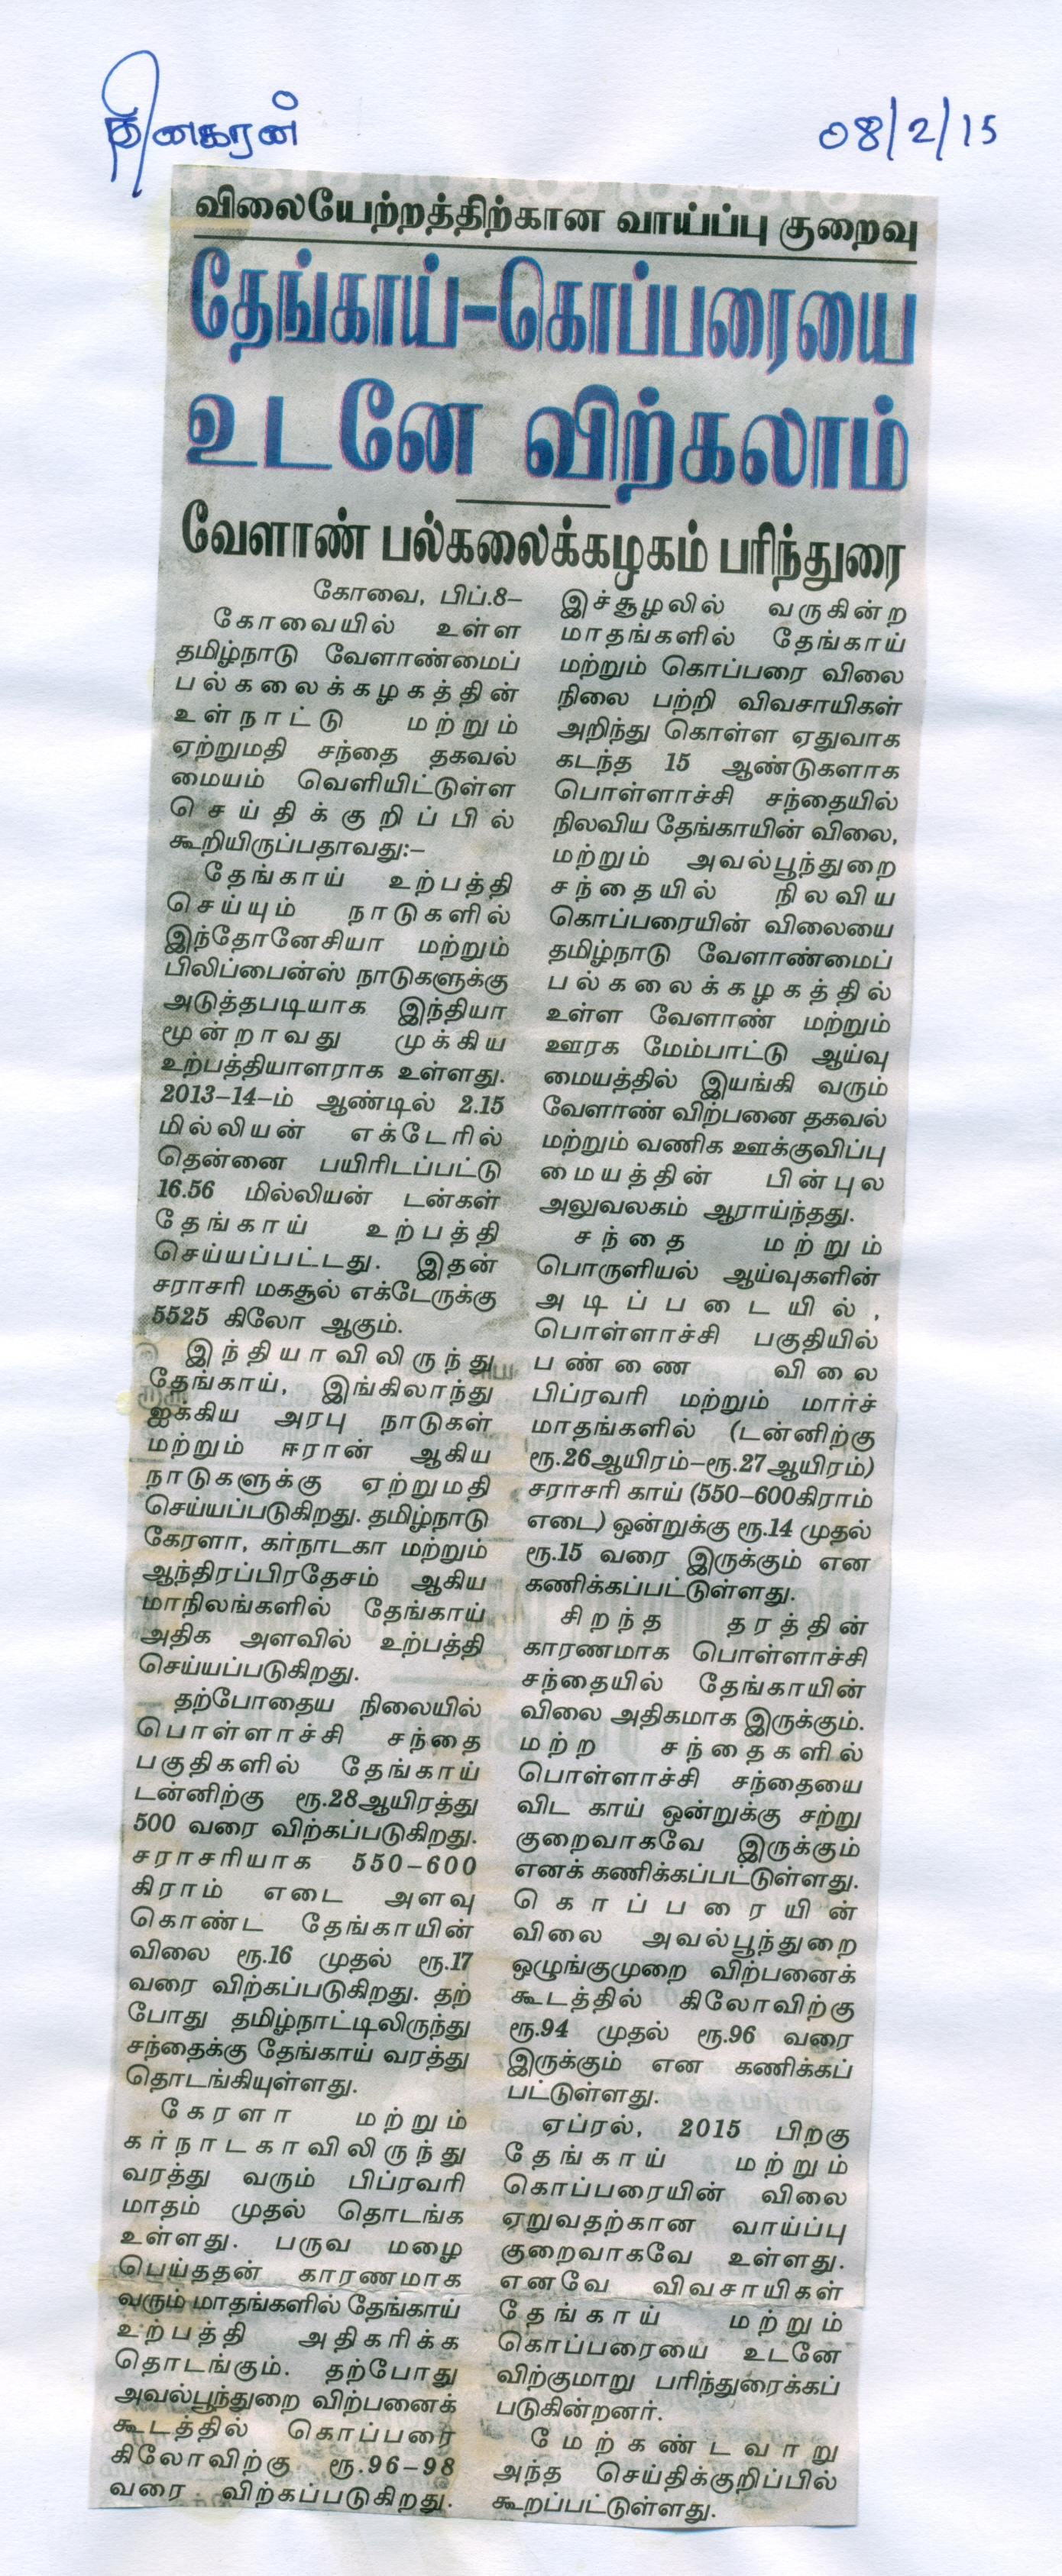 தினகரன்
08/2/15
விலையேற்றத்திற்கான வாய்ப்பு குறைவு
தேங்காய்-கொப்பரையை
உடனே விற்கலாம்
வேளாண் பல்கலைக்கழகம் பரிந்துரை
கோவை, பிப்.8–
கோவையில் உள்ள
தமிழ்நாடு வேளாண்மைப்
பல்கலைக்கழகத்தின்
உள்நாட்டு மற்றும்
ஏற்றுமதி சந்தை தகவல்
மையம் வெளியிட்டுள்ள
செய்திக்குறிப்பில்
கூறியிருப்பதாவது:–
தேங்காய் உற்பத்தி
செய்யும் நாடுகளில்
இந்தோனேசியா மற்றும்
பிலிப்பைன்ஸ் நாடுகளுக்கு
அடுத்தபடியாக இந்தியா
மூன்றாவது முக்கிய
உற்பத்தியாளராக உள்ளது.
2013–14–ம் ஆண்டில் 2.15
மில்லியன் எக்டேரில்
தென்னை பயிரிடப்பட்டு
16.56 மில்லியன் டன்கள்
தேங்காய் உற்பத்தி
செய்யப்பட்டது. இதன்
சராசரி மகசூல் எக்டேருக்கு
5525 கிலோ ஆகும்.
இந்தியாவிலிருந்து
தேங்காய், இங்கிலாந்து
ஐக்கிய அரபு நாடுகள்
மற்றும் ஈரான் ஆகிய
நாடுகளுக்கு ஏற்றுமதி
செய்யப்படுகிறது. தமிழ்நாடு
கேரளா, கர்நாடகா மற்றும்
ஆந்திரப்பிரதேசம் ஆகிய
மாநிலங்களில் தேங்காய்
அதிக அளவில் உற்பத்தி
செய்யப்படுகிறது.
தற்போதைய நிலையில்
பொள்ளாச்சி சந்தை
பகுதிகளில் தேங்காய்
டன்னிற்கு ரூ.28ஆயிரத்து
500 வரை விற்கப்படுகிறது.
சராசரியாக 550–600
கிராம் எடை அளவு
கொண்ட தேங்காயின்
விலை ரூ.16 முதல் ரூ.17
வரை விற்கப்படுகிறது. தற்
போது தமிழ்நாட்டிலிருந்து
சந்தைக்கு தேங்காய் வரத்து
தொடங்கியுள்ளது.
கேரளா மற்றும்
கர்நாடகாவிலிருந்து
வரத்து வரும் பிப்ரவரி
மாதம் முதல் தொடங்க
உள்ளது. பருவ மழை
பெய்ததன் காரணமாக
வரும் மாதங்களில் தேங்காய்
உற்பத்தி அதிகரிக்க
தொடங்கும். தற்போது
அவல்பூந்துறை விற்பனைக்
கூடத்தில் கொப்பரை
கிலோவிற்கு ரூ.96–98
வரை விற்கப்படுகிறது.
இச்சூழலில் வருகின்ற
மாதங்களில் தேங்காய்
மற்றும் கொப்பரை விலை
நிலை பற்றி விவசாயிகள்
அறிந்து கொள்ள ஏதுவாக
கடந்த 15 ஆண்டுகளாக
பொள்ளாச்சி சந்தையில்
நிலவிய தேங்காயின் விலை,
மற்றும் அவல்பூந்துறை
சந்தையில் நிலவிய
கொப்பரையின் விலையை
தமிழ்நாடு வேளாண்மைப்
பல்கலைக்கழகத்தில்
உள்ள வேளாண் மற்றும்
ஊரக மேம்பாட்டு ஆய்வு
மையத்தில் இயங்கி வரும்
வேளாண் விற்பனை தகவல்
மற்றும் வணிக ஊக்குவிப்பு
மையத்தின் பின்புல
அலுவலகம் ஆராய்ந்தது.
சந்தை மற்றும்
பொருளியல் ஆய்வுகளின்
அடிப்படையில்,
பொள்ளாச்சி பகுதியில்
பண்ணை விலை
பிப்ரவரி மற்றும் மார்ச்
மாதங்களில் (டன்னிற்கு
ரூ.26ஆயிரம்–ரூ.27ஆயிரம்)
சராசரி காய் (550–600கிராம்
எடை) ஒன்றுக்கு ரூ.14 முதல்
ரூ.15 வரை இருக்கும் என
கணிக்கப்பட்டுள்ளது.
சிறந்த தரத்தின்
காரணமாக பொள்ளாச்சி
சந்தையில் தேங்காயின்
விலை அதிகமாக இருக்கும்.
மற்ற சந்தைகளில்
பொள்ளாச்சி சந்தையை
விட காய் ஒன்றுக்கு சற்று
குறைவாகவே இருக்கும்
எனக் கணிக்கப்பட்டுள்ளது.
கொப்பரையின்
விலை அவல்பூந்துறை
ஒழுங்குமுறை விற்பனைக்
கூடத்தில் கிலோவிற்கு
ரூ.94 முதல் ரூ.96 வரை
இருக்கும் என கணிக்கப்
பட்டுள்ளது.
ஏப்ரல், 2015 பிறகு
தேங்காய் மற்றும்
கொப்பரையின் விலை
ஏறுவதற்கான வாய்ப்பு
குறைவாகவே உள்ளது.
எனவே விவசாயிகள்
தேங்காய் மற்றும்
கொப்பரையை உடனே
விற்குமாறு பரிந்துரைக்கப்
படுகின்றனர்.
மேற்கண்டவாறு
அந்த செய்திக்குறிப்பில்
கூறப்பட்டுள்ளது.